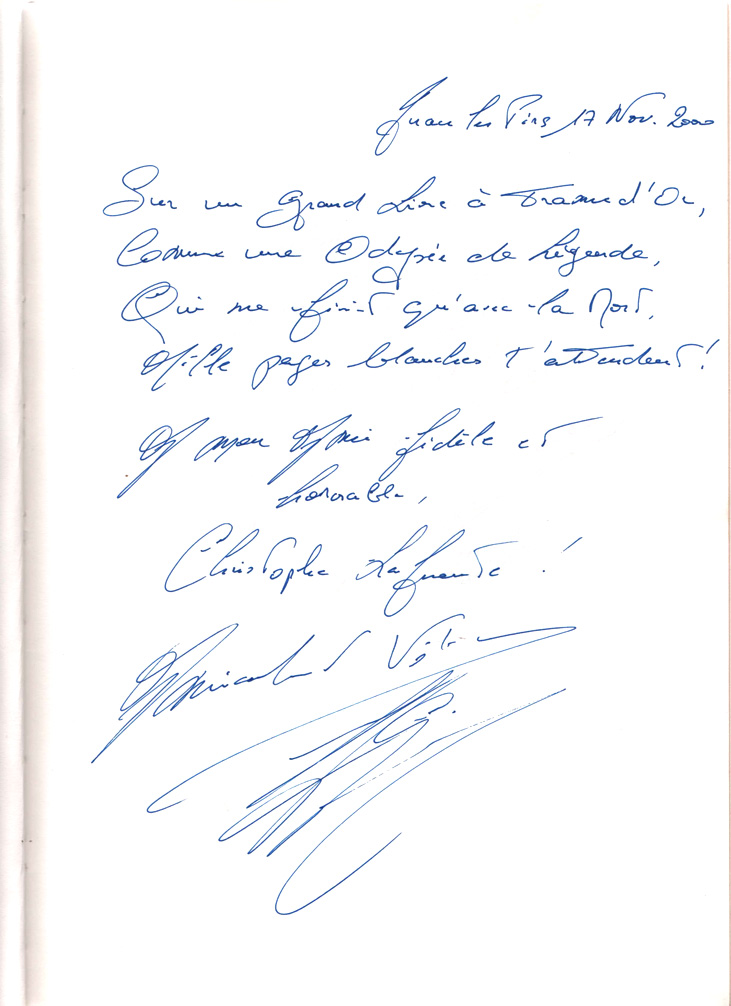 Juan les Pins 17 Nov. 2000
Sur un grand Livre à Trame d'Or,
Comme une Odyssée de Légende,
Qui ne finit qu'avec la Mort,
Mille pages blanches t'attendent !
A mon Ami fidèle et
honorable,
Christophe Lafuente !
Amicalement Vôtre